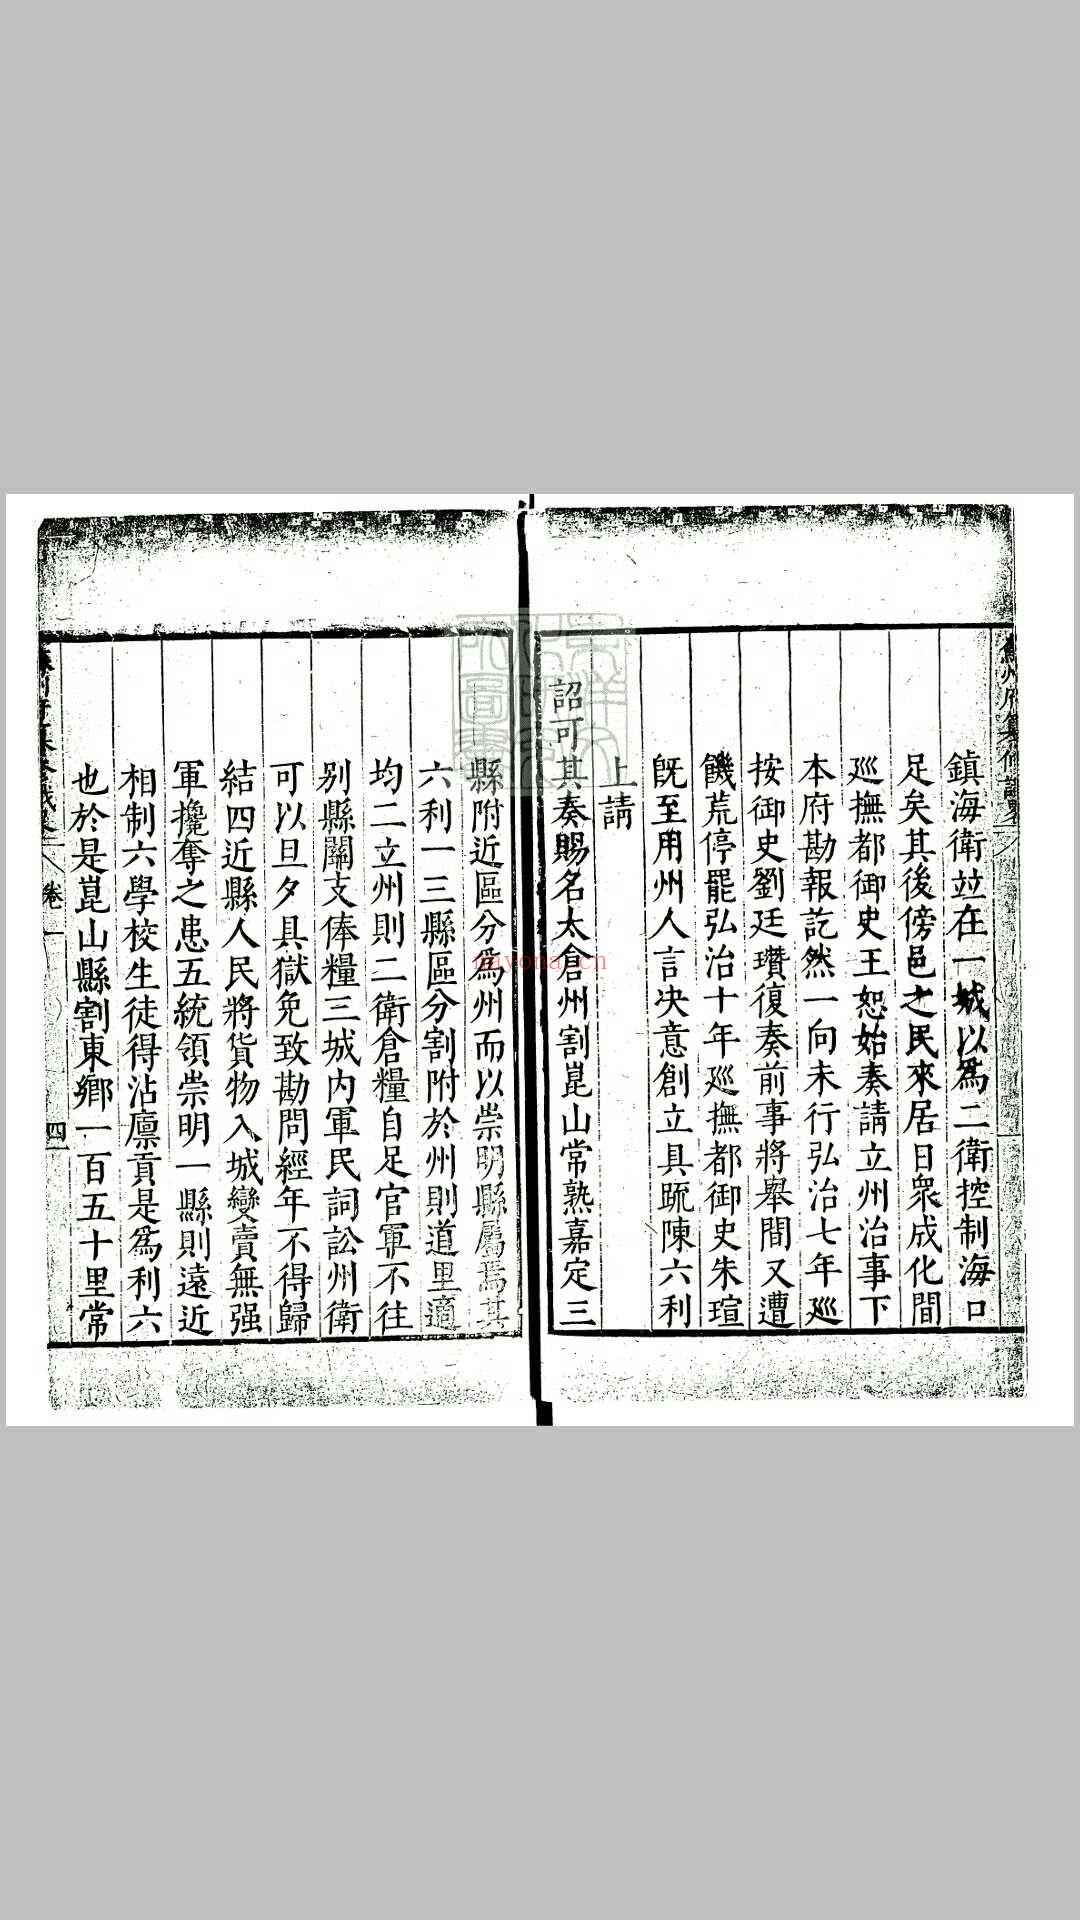 鎮海衛竝在一城以爲二衛控制海口
足矣其後傍邑之民來居日衆成化間
巡撫都御史王恕始奏請立州治事下
本府勘報訖然一向未行弘治七年巡
按御史劉廷瓚復奏前事將舉間又遭
饑荒停罷弘治十年巡撫都御史朱瑄
旣至用州人言决意創立具疏陳六利
上請
詔可其奏賜名太倉州割崑山常熟嘉定三
縣附近區分爲州而以崇明縣屬焉其
六利一三縣區分割附於州則道里適
均二立州則二衛倉糧自足官軍不往
别縣關支俸糧三城内軍民詞訟州衛
可以旦夕具獄免致勘問經年不得歸
結四近縣人民將貨物入城變賣無强
軍攙奪之患五統領崇明一縣則遠近
相制六學校生徒得沾廪貢是爲利六
也於是崑山縣割東鄉一百五十里常
卷一
四
nayona.cn